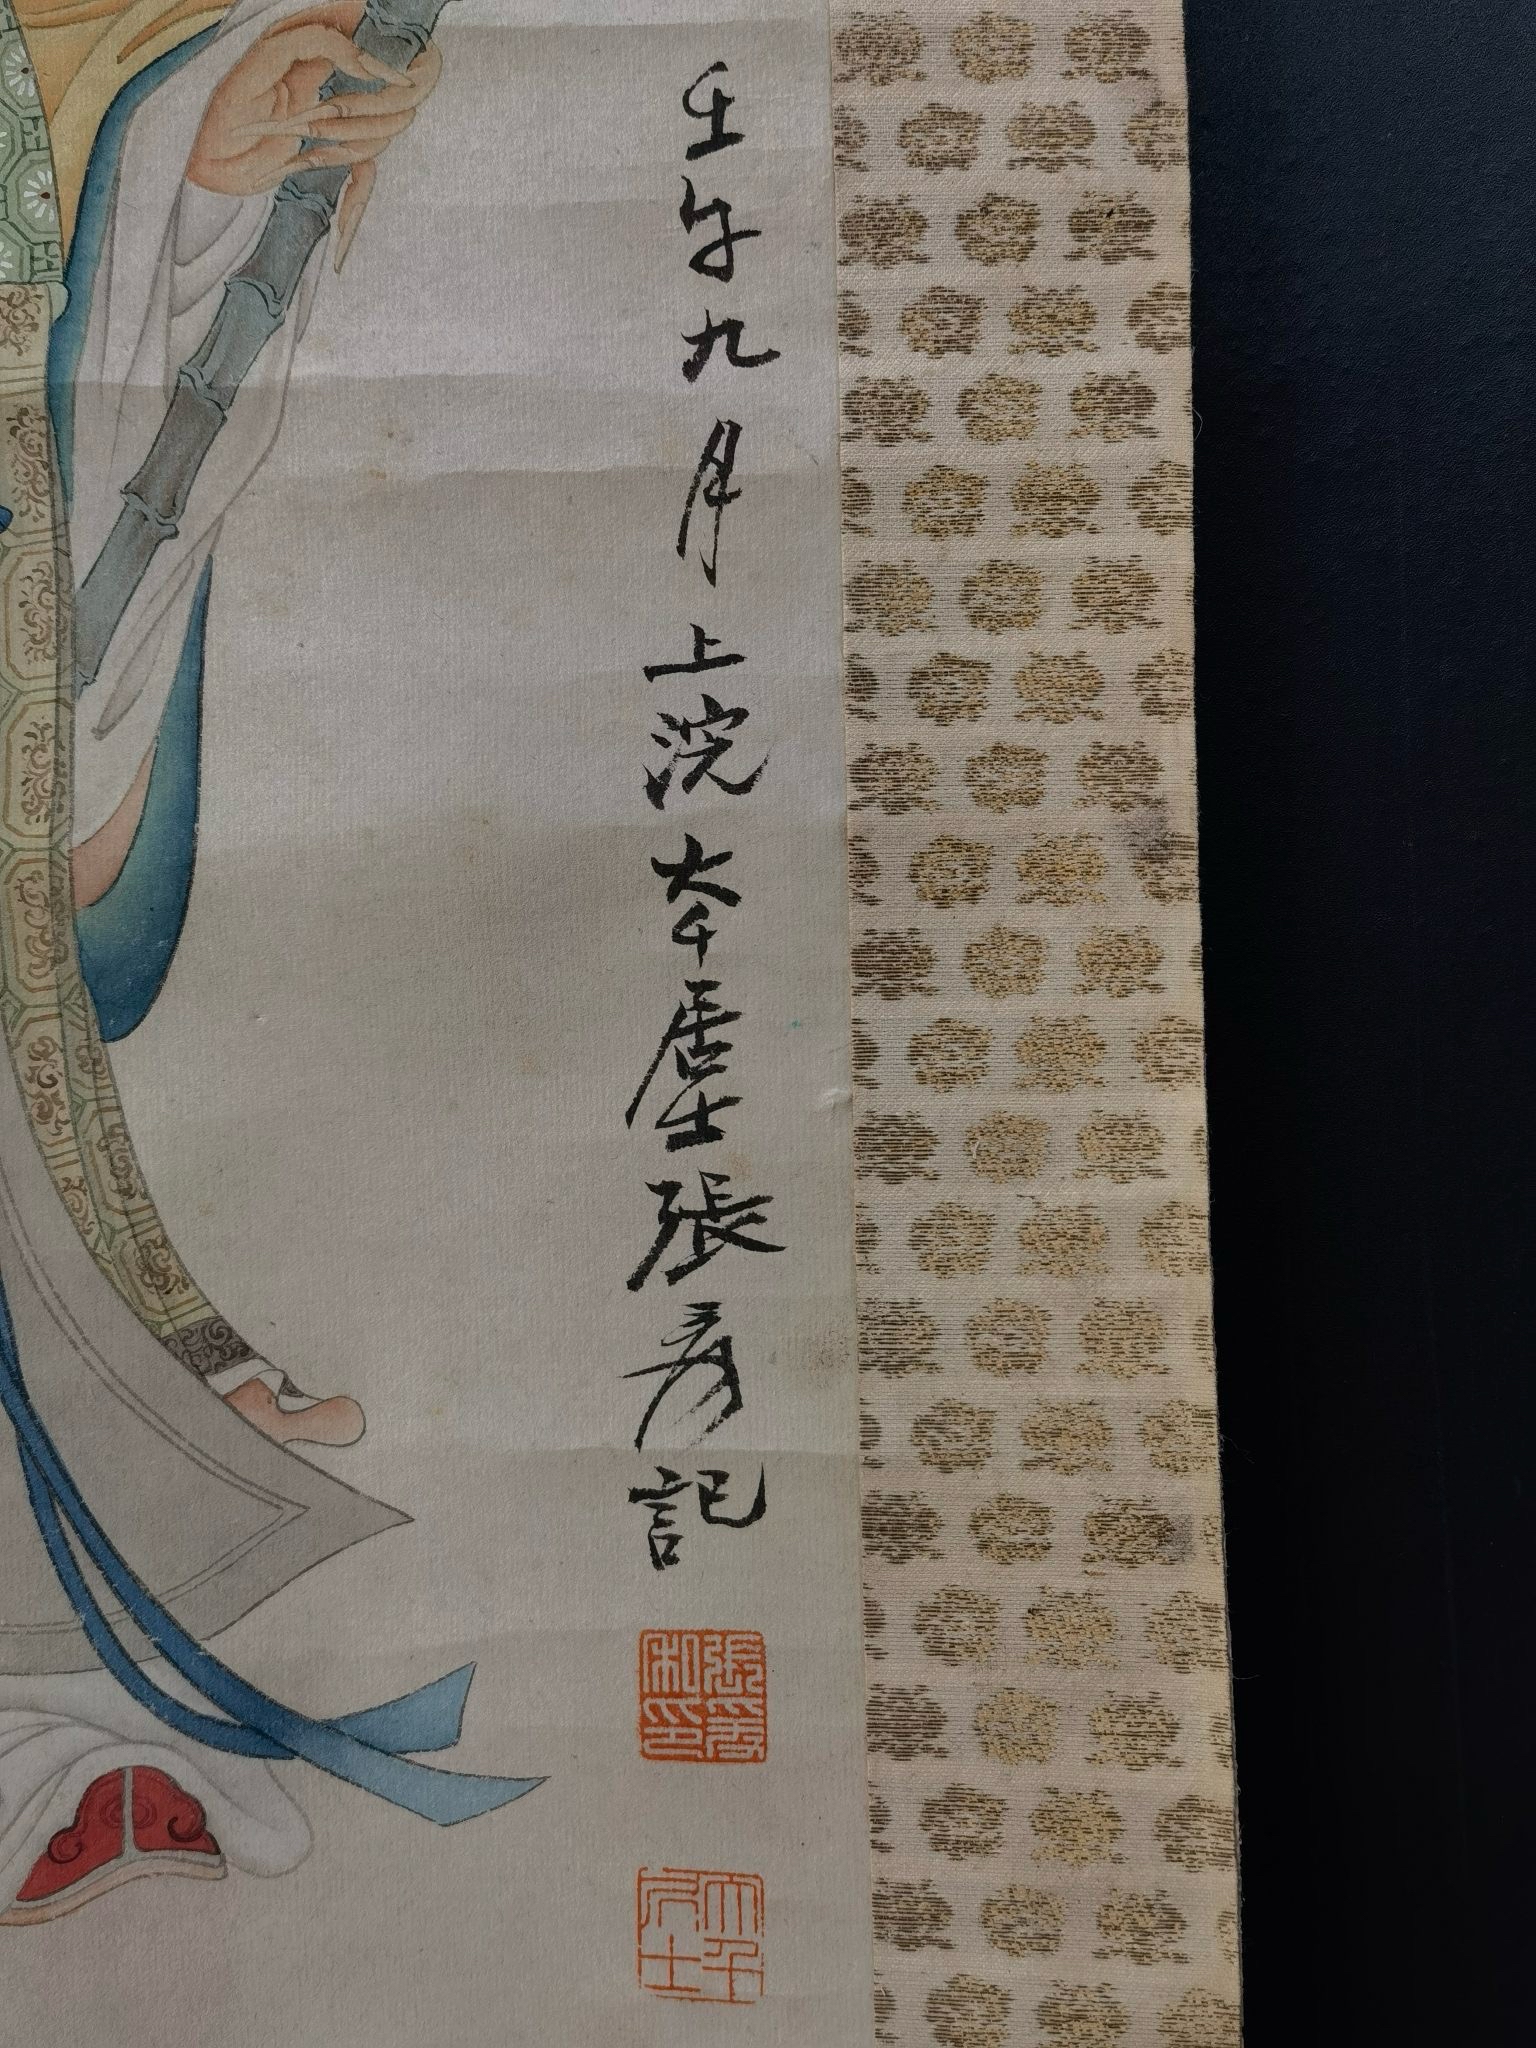 壬午九月上浣大千居士張爰記
張爰私印
大千居士